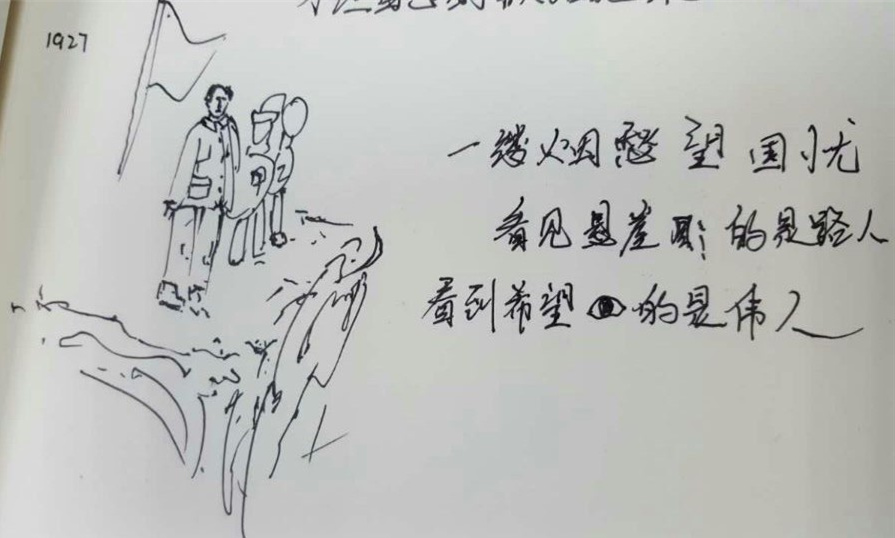 1927
一缕火因愁 望国忧
看见悬崖的是路人
看到希望的是伟人